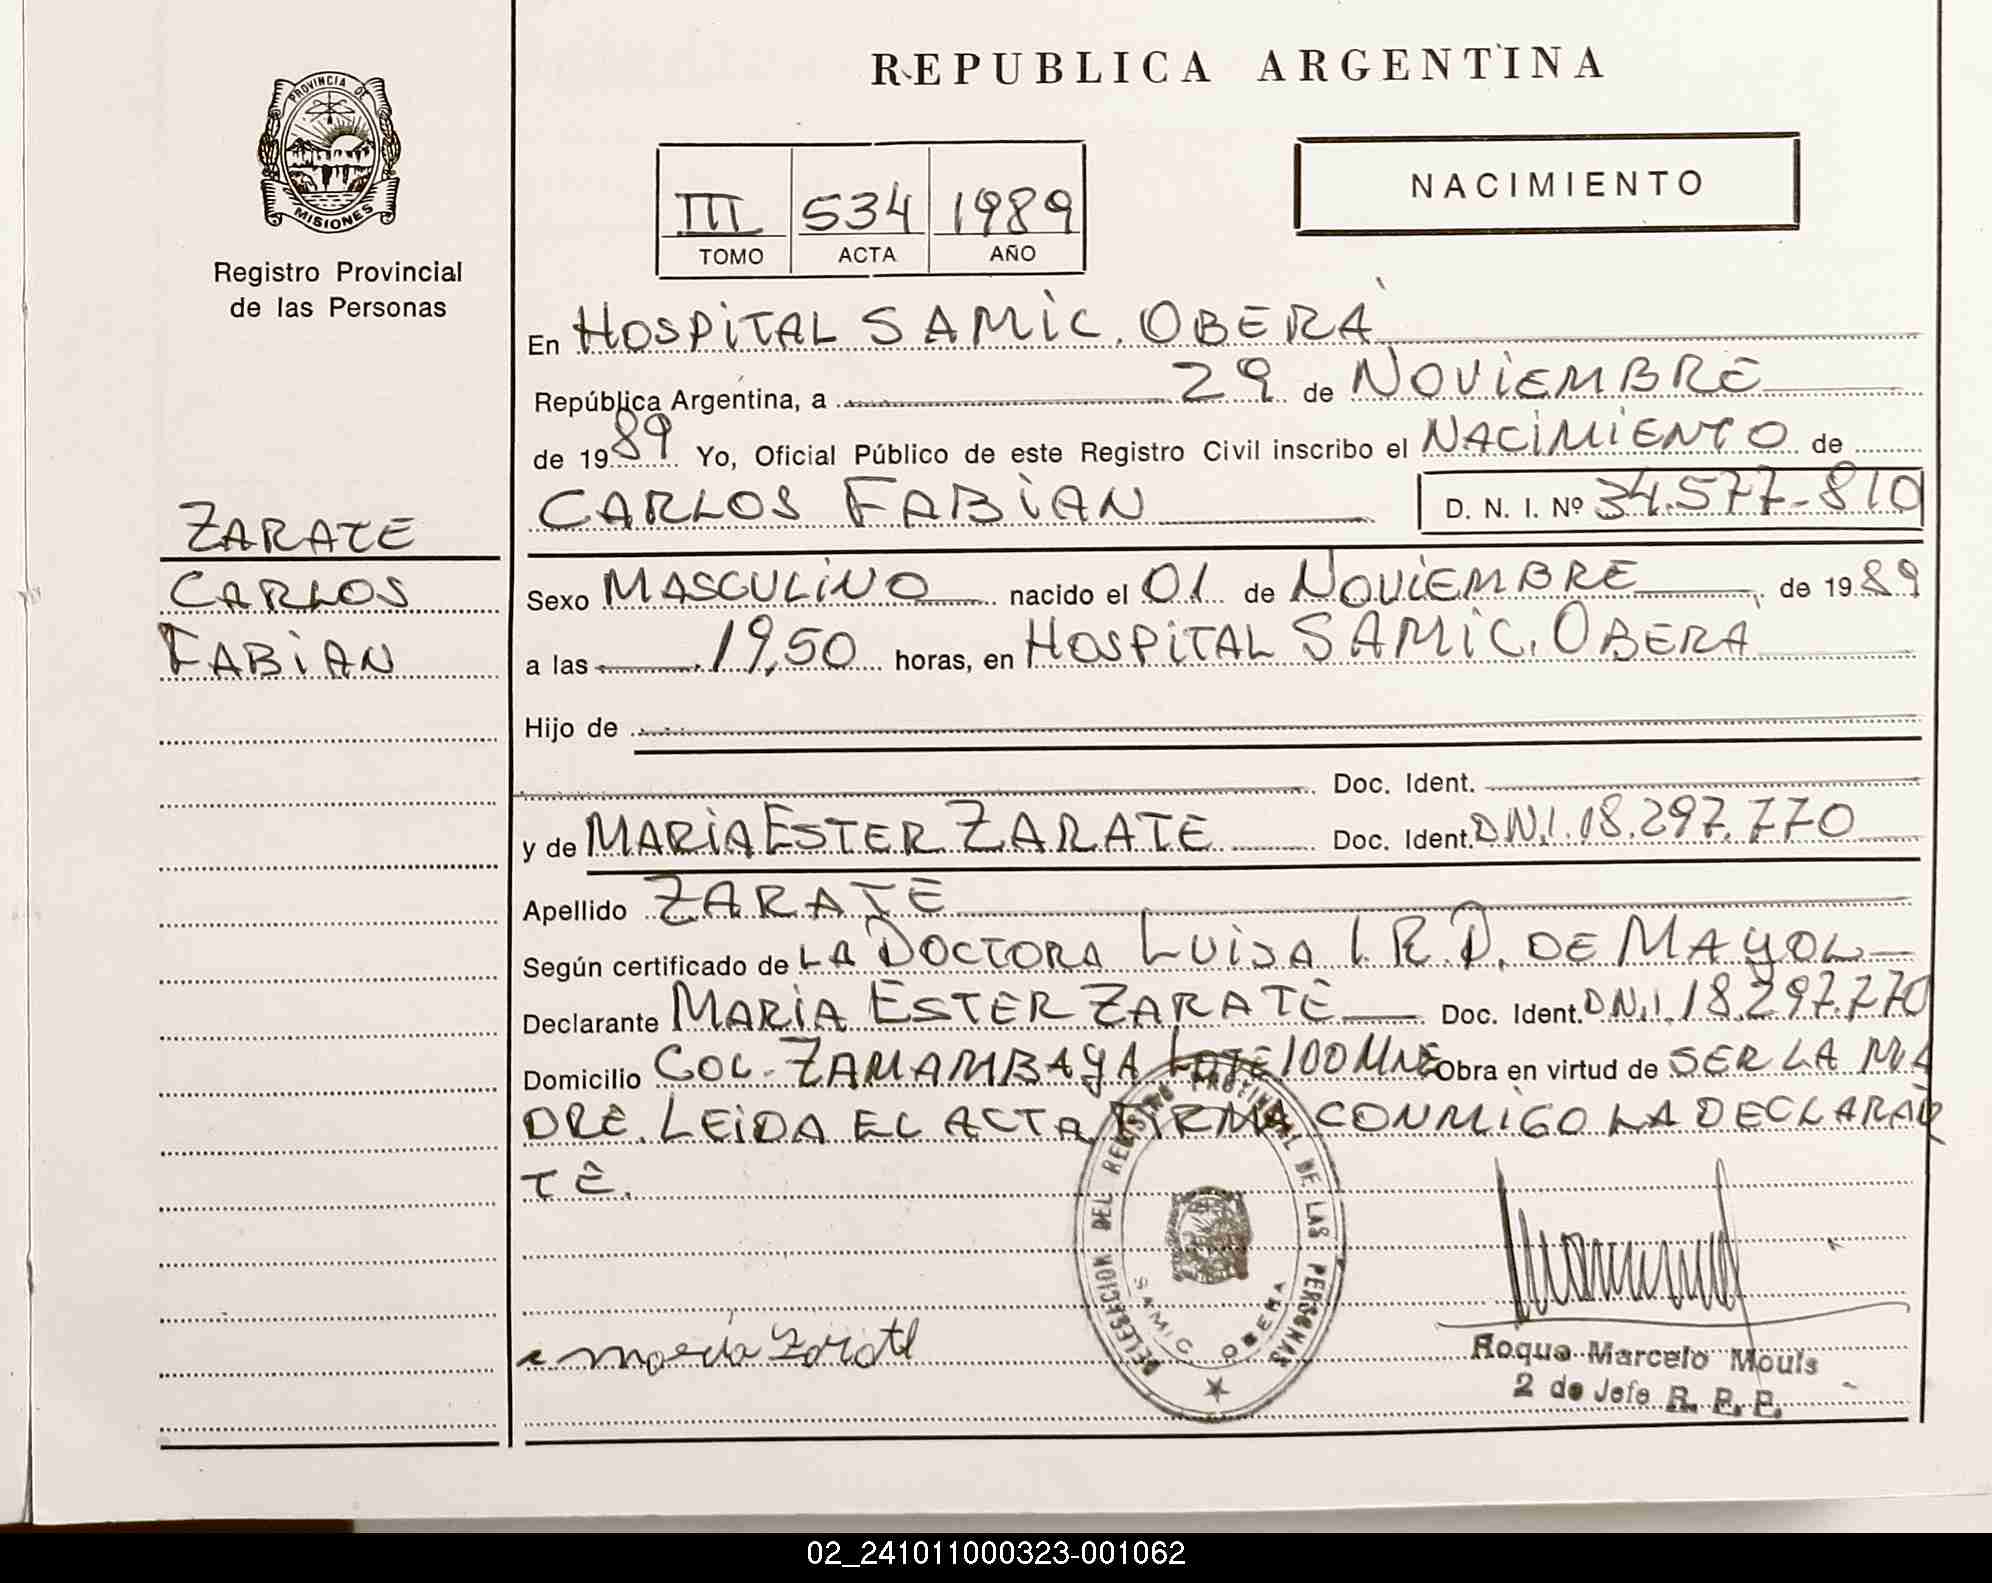 REPUBLICA ARGENTINA
PROVINCIA DE
MISIONES
Registro Provincial
de las Personas
III 534 1989
TOMO ACTA AÑO
NACIMIENTO
En HOSPITAL SAMIC. OBERÁ
República Argentina, a 29 de NOVIEMBRE
de 1989 Yo, Oficial Público de este Registro Civil inscribo el NACIMIENTO de
CARLOS FABIAN D. N. I. Nº 34.577-810
ZARATE
CARLOS
FABIAN
Sexo MASCULINO nacido el 01 de NOVIEMBRE de 1989
a las 19,50 horas, en HOSPITAL SAMIC. OBERA
Hijo de
Doc. Ident.
y de MARIA ESTER ZARATE Doc. Ident. DN.I.18.297.770
Apellido ZARATE
Según certificado de LA DOCTORA LUISA I. R. D. DE MAYOL
Declarante MARIA ESTER ZARATE Doc. Ident. DN.I.18.297.770
Domicilio COL. ZAMAMBAYA LOTE 100 Obra en virtud de SER LA MA
DRE. LEIDA EL ACTA FIRMA CONMIGO LA DECLARAN
TE.
DELEGACION DEL REGISTRO PROVINCIAL DE LAS PERSONAS
SAMIC OBERA
Maria Zarate
Roque Marcelo Mouls
2 do Jefe R. P. P.
02_241011000323-001062